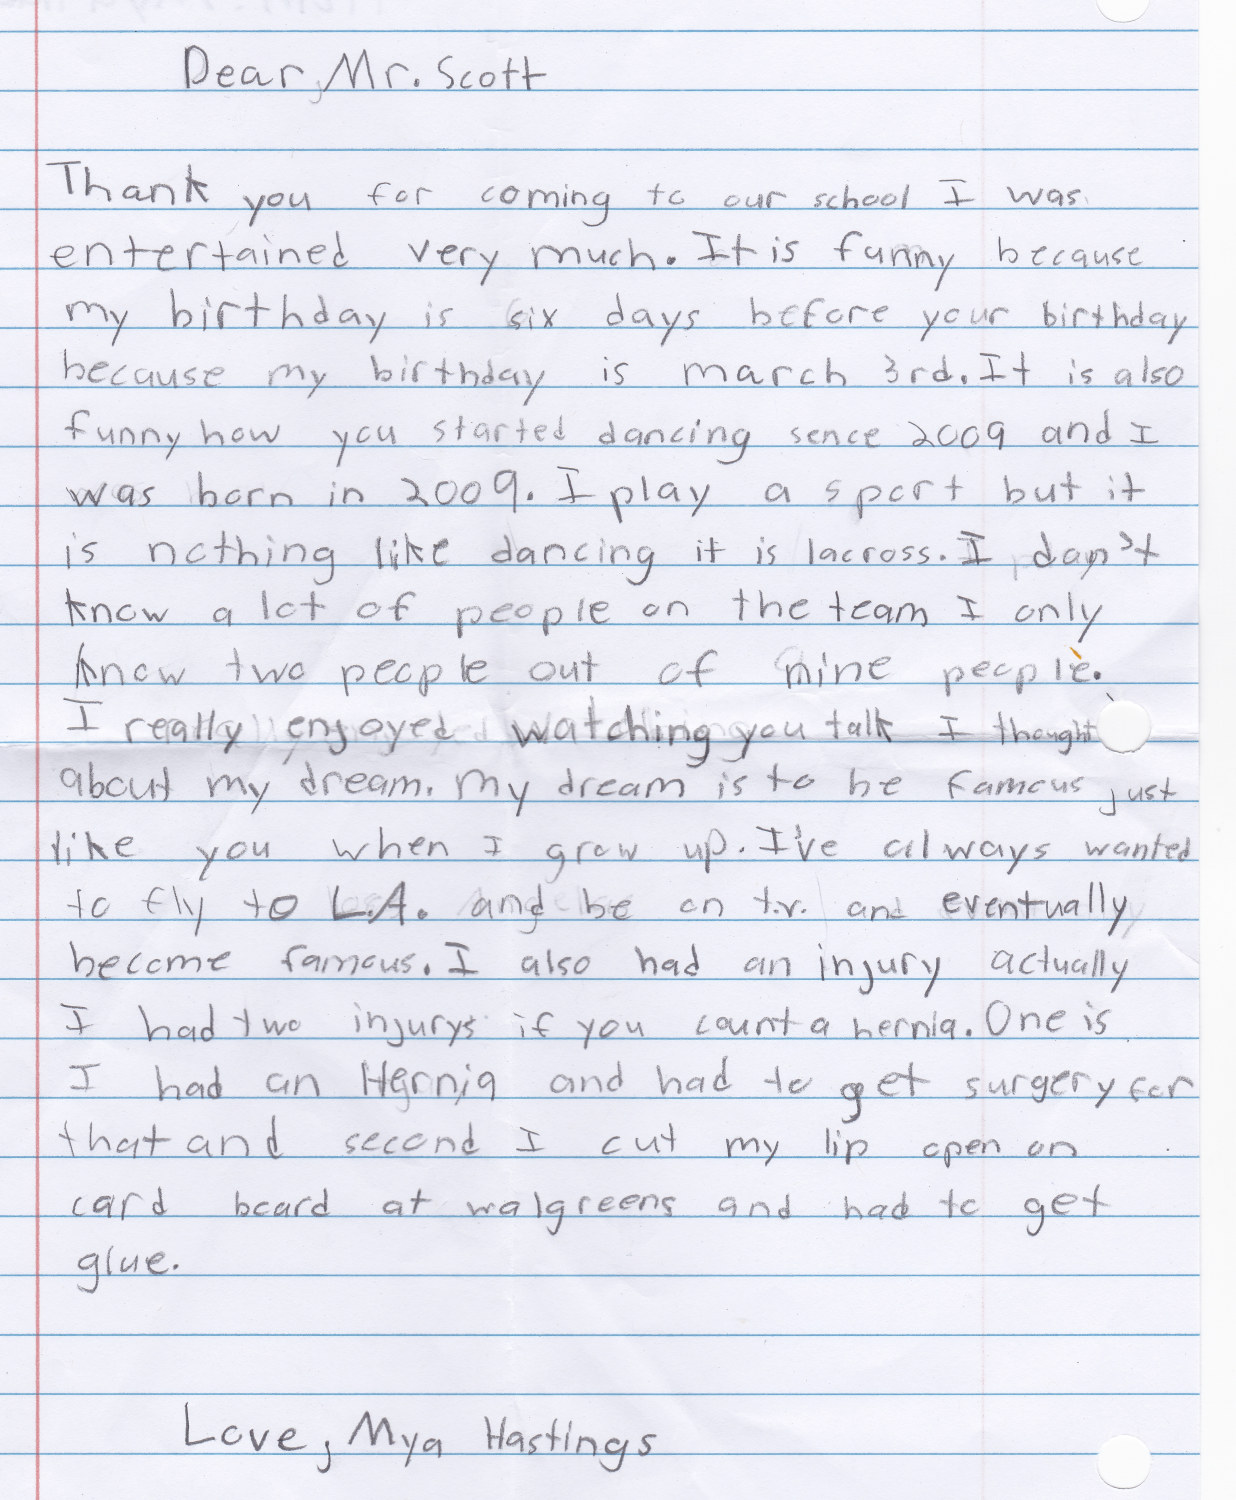 Dear, Mr. Scott
Thank you for coming to our school I was
entertained very much. It is funny because
my birthday is six days before your birthday
because my birthday is march 3rd. It is also
funny how you started dancing sence 2009 and I
was born in 2009. I play a sport but it
is nothing like dancing it is lacross. I don't
know a lot of people on the team I only
know two people out of nine people.
I really enjoyed watching you talk I thought
about my dream. My dream is to be famous just
like you when I grow up. I've always wanted
to fly to L.A. and be on t.v. and eventually
become famous. I also had an injury actually
I had two injurys if you count a hernia. One is
I had an Hernia and had to get surgery for
that and second I cut my lip open on
card board at walgreens and had to get
glue.
Love, Mya Hastings